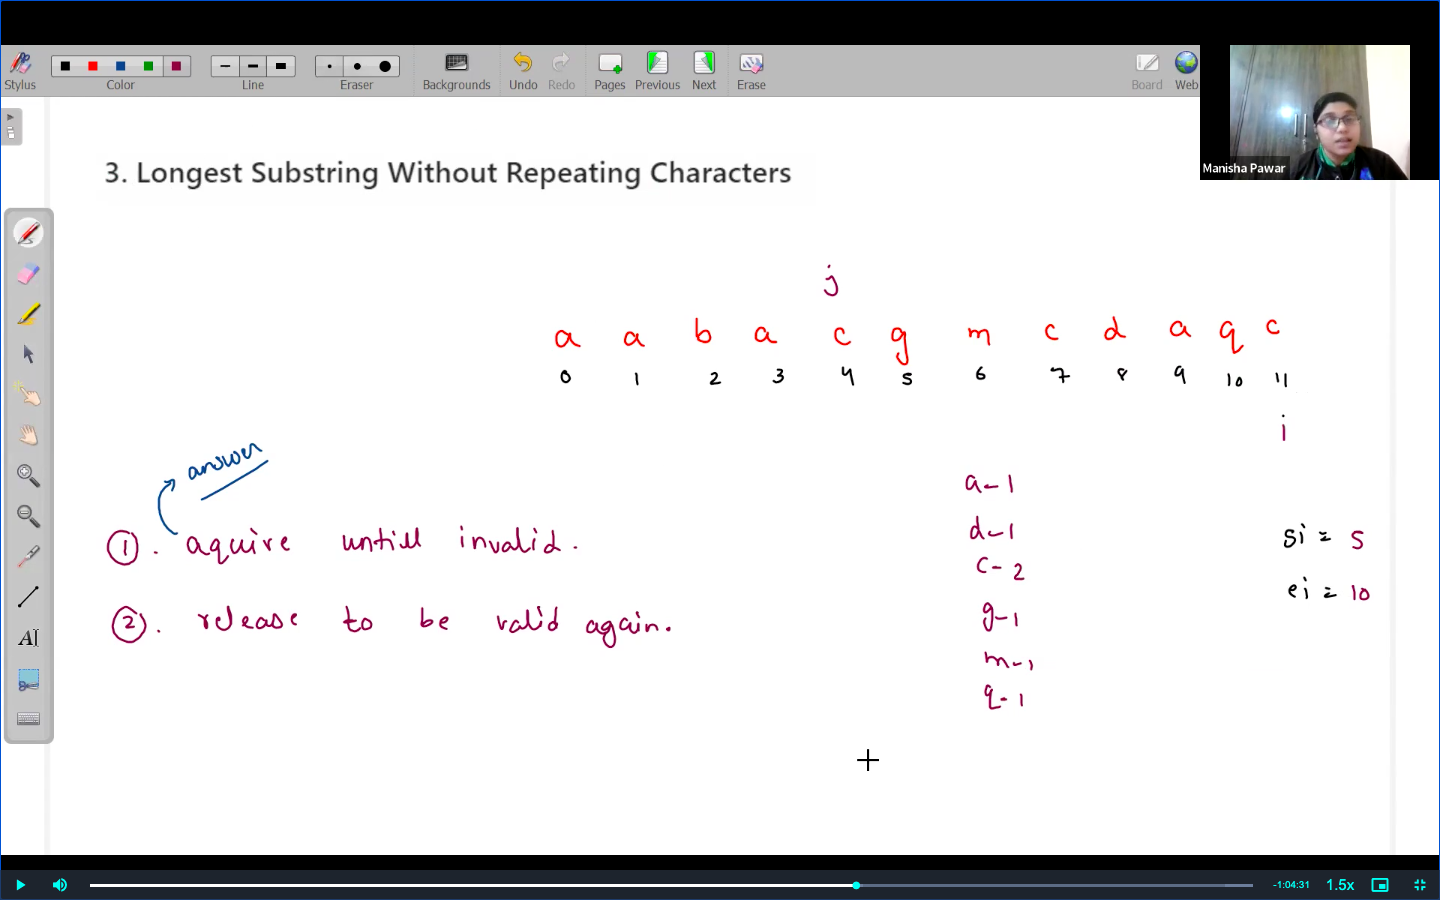 Stylus Color Line Eraser Backgrounds Undo Redo Pages Previous Next Erase Board Web
Manisha Pawar
3. Longest Substring Without Repeating Characters
j
a a b a c g m c d a q c
0 1 2 3 4 5 6 7 8 9 10 11
i
answer
① . aquire untill invalid.
② . release to be valid again.
a-1
d-1
c-2
g-1
m-1
q-1
si = 5
ei = 10
AI
-1:04:31 1.5x